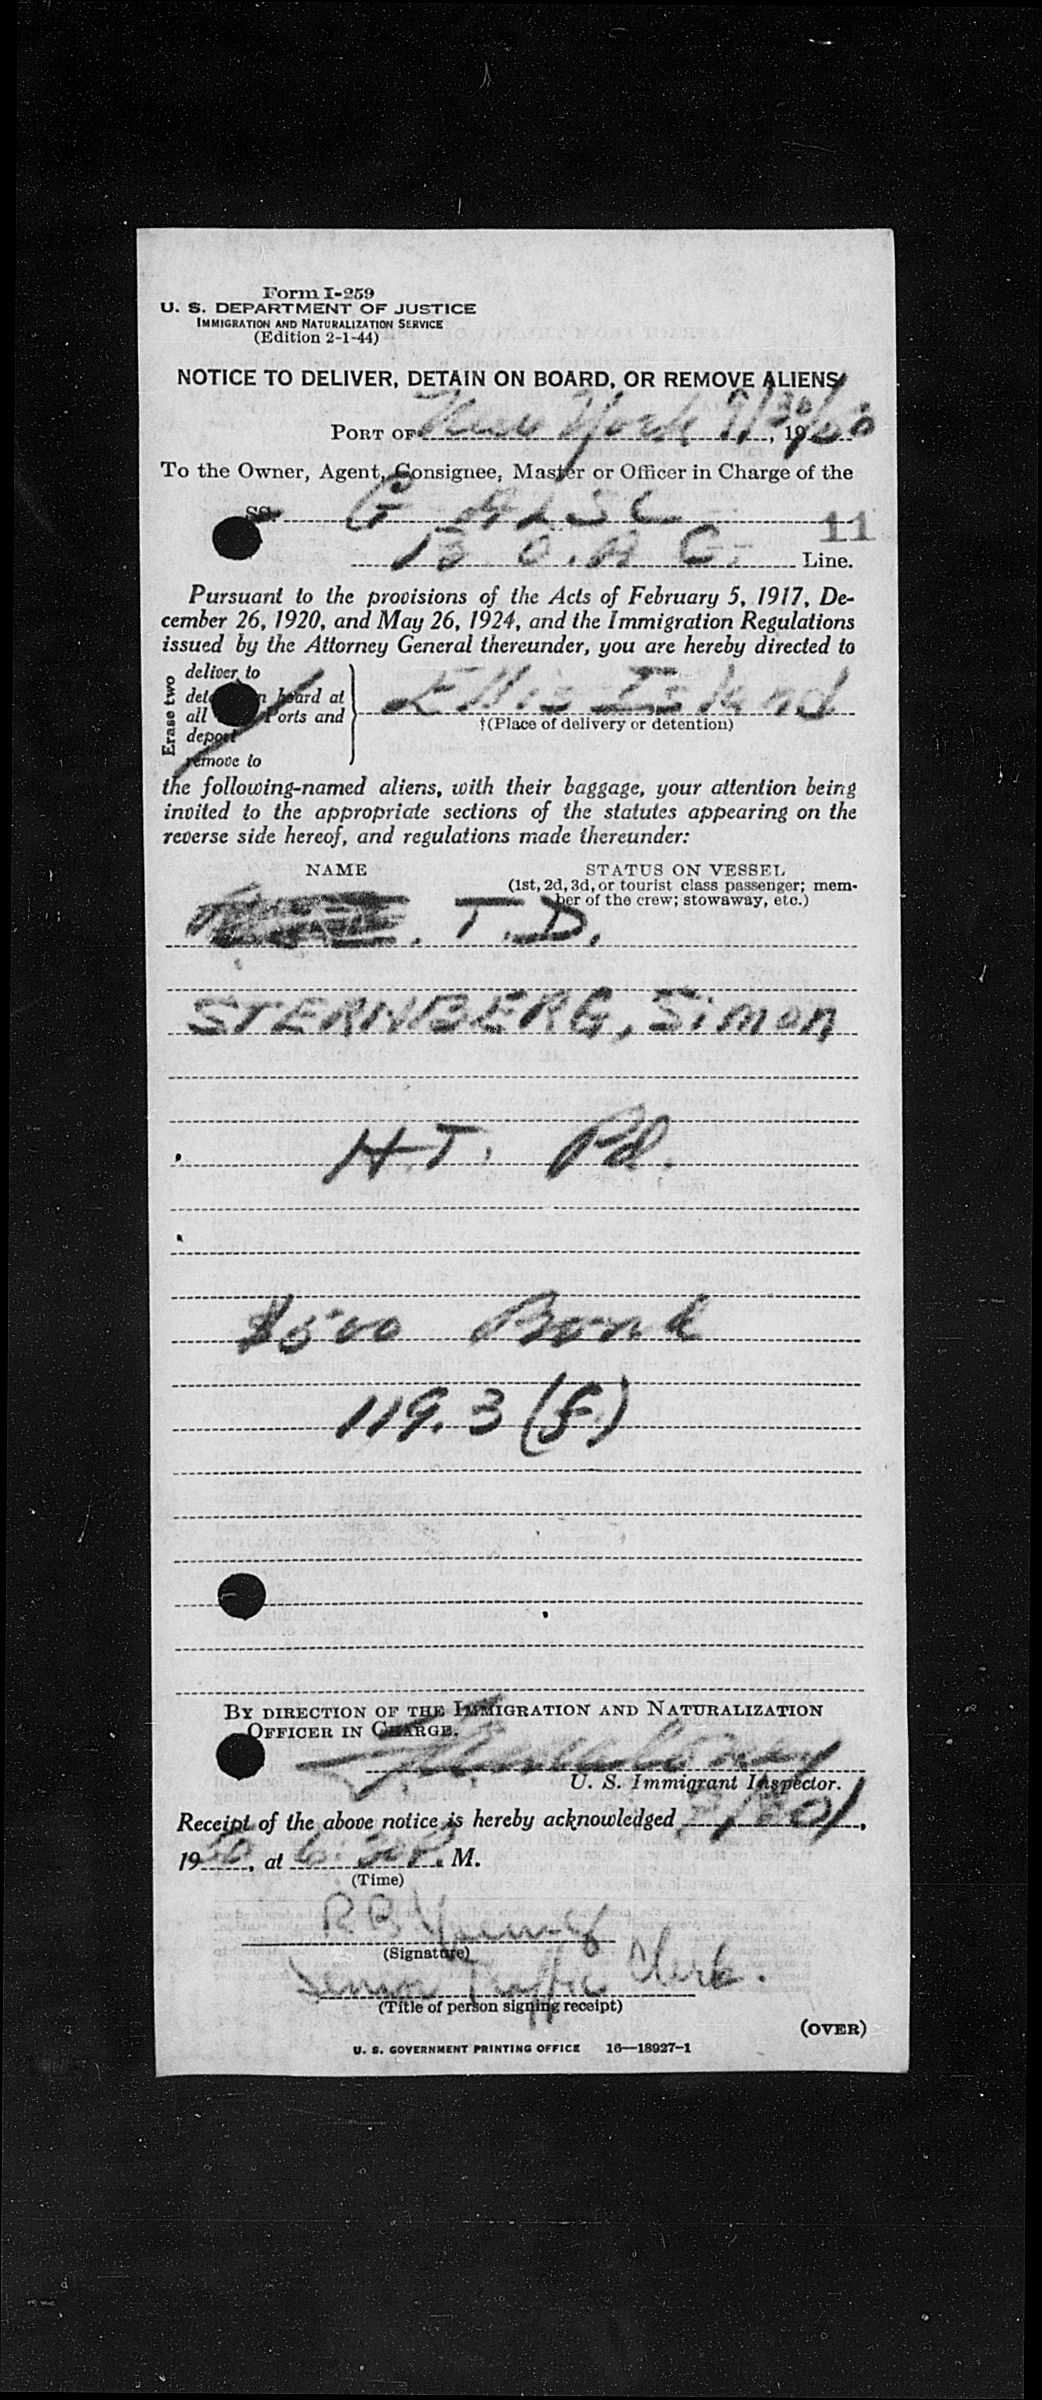 Form I-259
U. S. DEPARTMENT OF JUSTICE
IMMIGRATION AND NATURALIZATION SERVICE
(Edition 2-1-44)
NOTICE TO DELIVER, DETAIN ON BOARD, OR REMOVE ALIENS
PORT OF New York 9/30/50, 19
To the Owner, Agent, Consignee, Master or Officer in Charge of the
SS G ALSC
11
B. O. A. C. Line.
Pursuant to the provisions of the Acts of February 5, 1917, De-
cember 26, 1920, and May 26, 1924, and the Immigration Regulations
issued by the Attorney General thereunder, you are hereby directed to
Erase two
deliver to
board at
all Ports and
deport
remove to
Ellis Island
†(Place of delivery or detention)
the following-named aliens, with their baggage, your attention being
invited to the appropriate sections of the statutes appearing on the
reverse side hereof, and regulations made thereunder:
NAME STATUS ON VESSEL
(1st, 2d, 3d, or tourist class passenger; mem-
ber of the crew; stowaway, etc.)
T. D.
STERNBERG, Simon
H.T. Pd.
$500 Bond
119.3 (f)
BY DIRECTION OF THE IMMIGRATION AND NATURALIZATION
OFFICER IN CHARGE.
U. S. Immigrant Inspector.
Receipt of the above notice is hereby acknowledged 9/30/,
1950, at 6:30 P. M.
(Time)
R B Young
(Signature)
Senior Traffic Clerk.
(Title of person signing receipt)
(OVER)
U. S. GOVERNMENT PRINTING OFFICE 16—18927-1